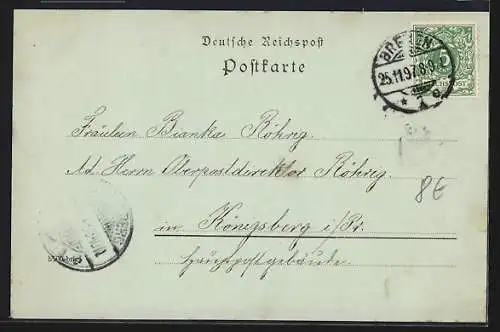 Deutsche Reichspost
Postkarte
BREMEN
25.11.97.8-9
5
Fräulein Bianka Röhrig
Ad. Herrn Oberpostdirektor Röhrig
8€
in Königsberg i/Pr.
Hauptpostgebäude.